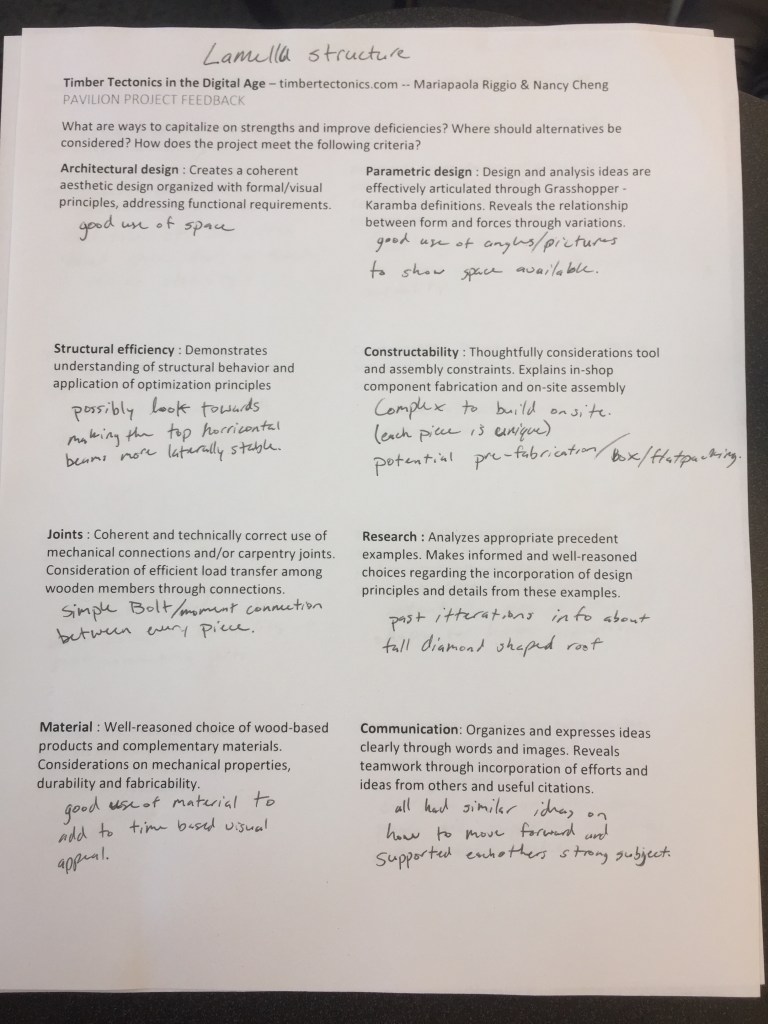 Lamella structure
Timber Tectonics in the Digital Age – timbertectonics.com -- Mariapaola Riggio & Nancy Cheng
PAVILION PROJECT FEEDBACK
What are ways to capitalize on strengths and improve deficiencies? Where should alternatives be
considered? How does the project meet the following criteria?
Architectural design : Creates a coherent
aesthetic design organized with formal/visual
principles, addressing functional requirements.
good use of space
Parametric design : Design and analysis ideas are
effectively articulated through Grasshopper -
Karamba definitions. Reveals the relationship
between form and forces through variations.
good use of angles/pictures
to show space available.
Structural efficiency : Demonstrates
understanding of structural behavior and
application of optimization principles
possibly look towards
making the top horricontal
beams more laterally stable.
Constructability : Thoughtfully considerations tool
and assembly constraints. Explains in-shop
component fabrication and on-site assembly
Complex to build onsite.
(each piece is unique)
potential pre-fabrication/Box/flatpacking.
Joints : Coherent and technically correct use of
mechanical connections and/or carpentry joints.
Consideration of efficient load transfer among
wooden members through connections.
simple Bolt/moment connection
between every piece.
Research : Analyzes appropriate precedent
examples. Makes informed and well-reasoned
choices regarding the incorporation of design
principles and details from these examples.
past itterations info about
tall diamond shaped roof
Material : Well-reasoned choice of wood-based
products and complementary materials.
Considerations on mechanical properties,
durability and fabricability.
good use of material to
add to time based visual
appeal.
Communication: Organizes and expresses ideas
clearly through words and images. Reveals
teamwork through incorporation of efforts and
ideas from others and useful citations.
all had similar ideas on
how to move forward and
supported eachothers strong subject.